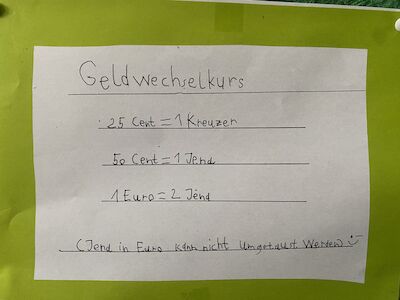 Geldwechselkurs
25 Cent = 1 Kreuzer
50 Cent = 1 Jend
1 Euro = 2 Jend
(Jend in Euro kann nicht umgetaust werden) :-)